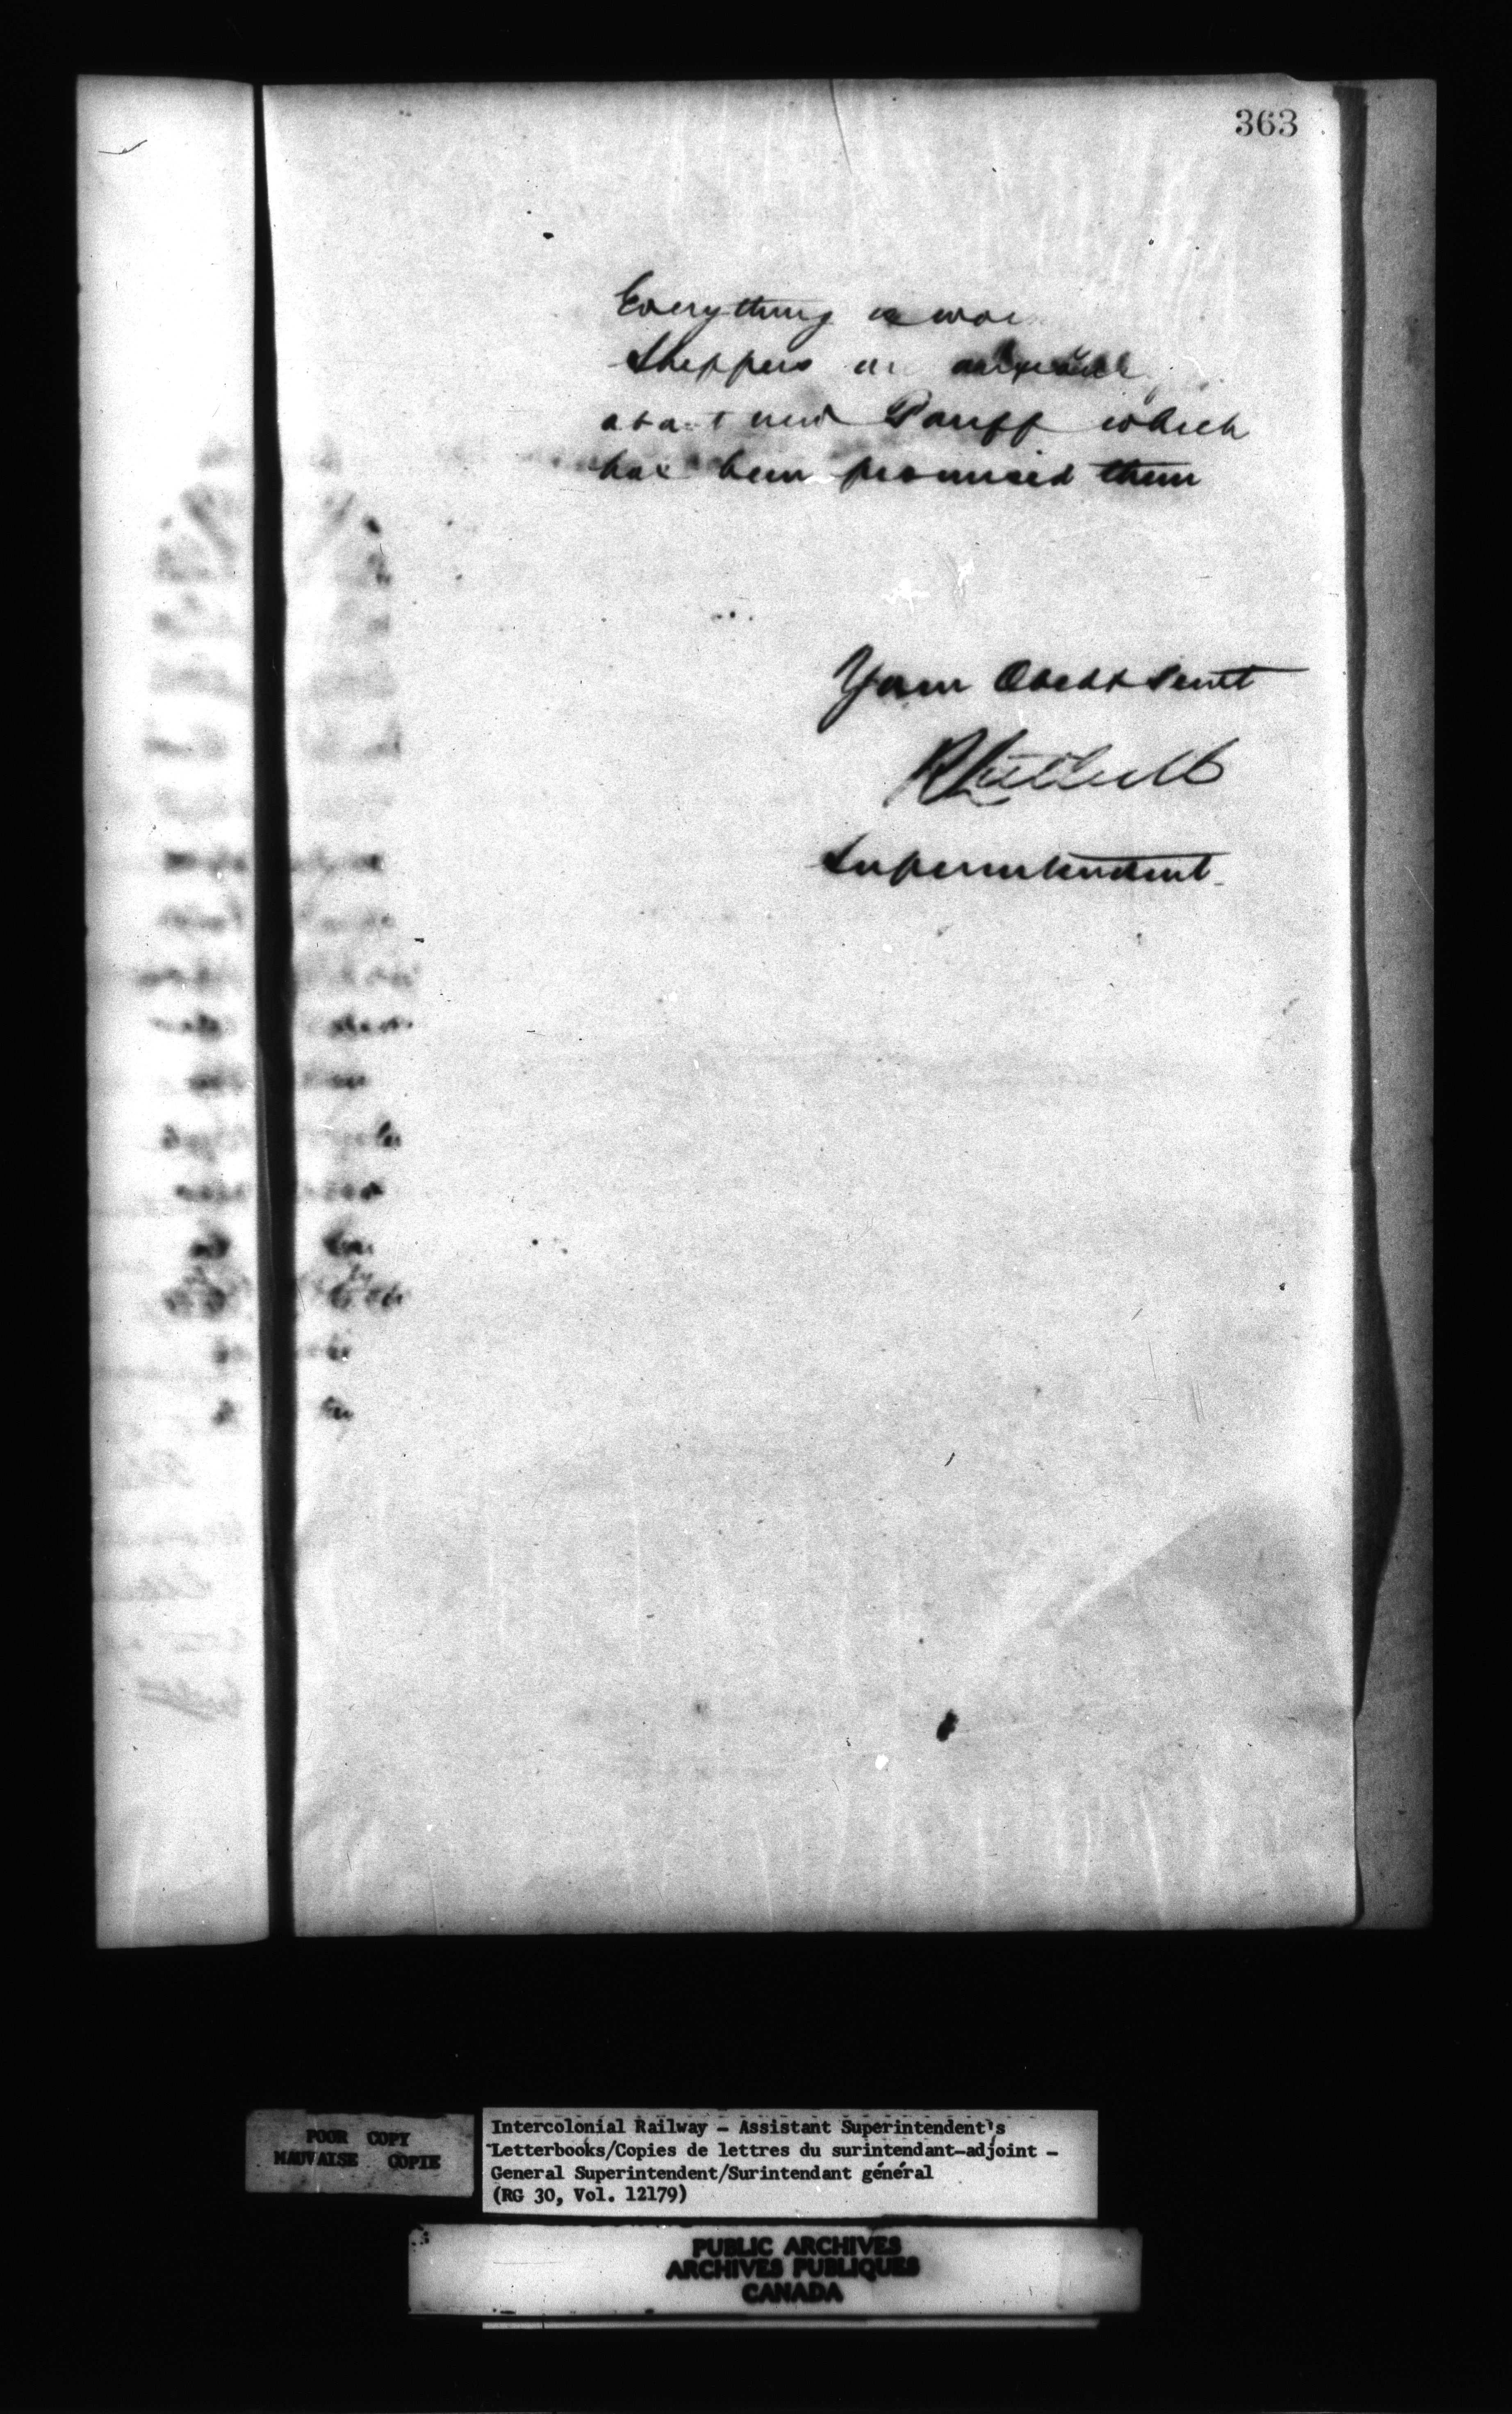 363
Everything is
Shippers
about new Tariff which
has been promised them
Your Obedt Servt
Superintendent
POOR COPY
MAUVAISE COPIE
Intercolonial Railway - Assistant Superintendent's
Letterbooks/Copies de lettres du surintendant-adjoint -
General Superintendent/Surintendant général
(RG 30, Vol. 12179)
PUBLIC ARCHIVES
ARCHIVES PUBLIQUES
CANADA